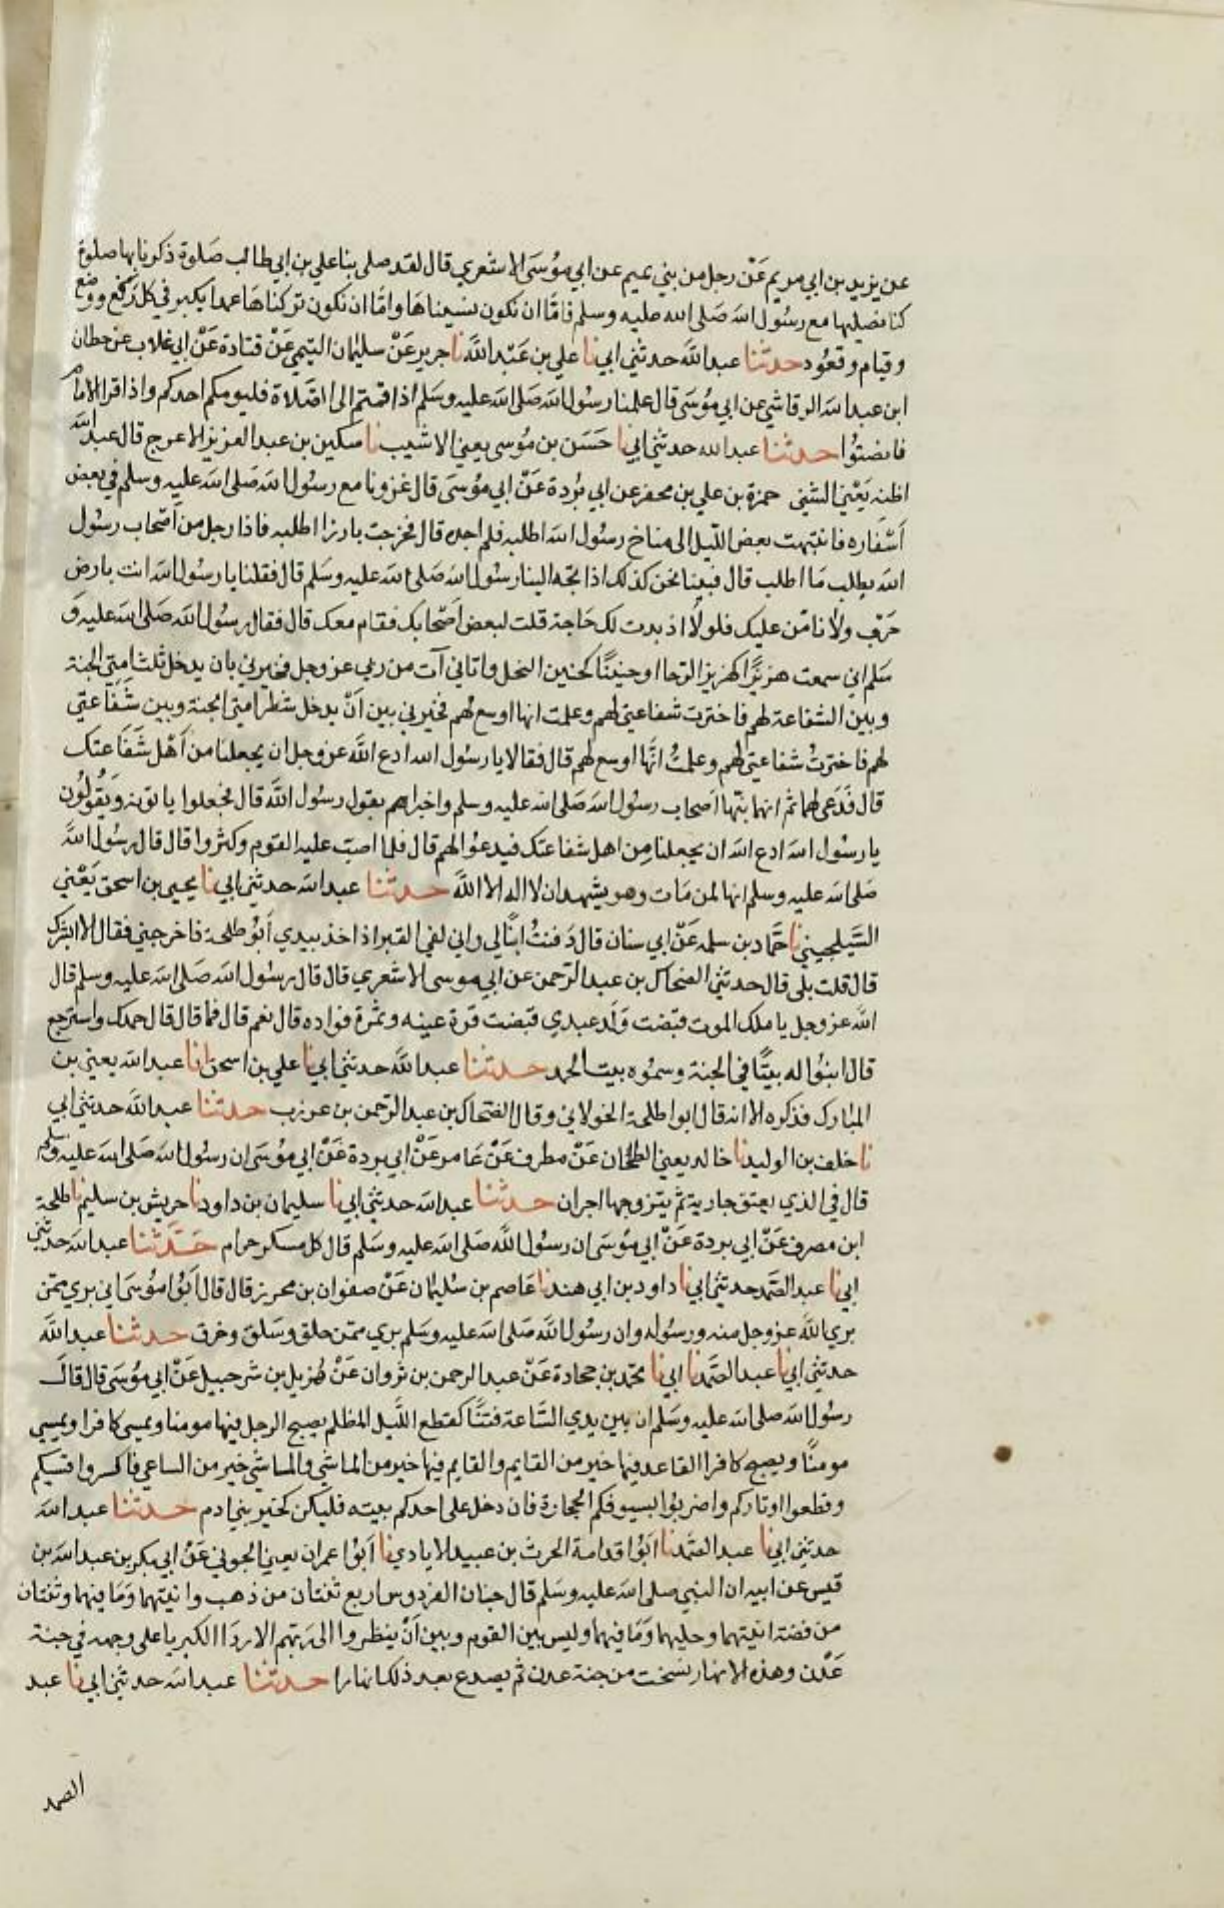 عن يزيد بن ابي مريم عَنْ رجل من بني تميم عن ابي موُسَى الاشعري قال لقد صلى بنا علي بن ابي طالب صَلوة ذكرنا بها صلوة
كنا نصليها مع رسُول الله صَلى الله عليه وسلم فامَّا ان نكون نسيناهَا وامَّا ان نكون تركناهَا عمدا يكبر في كل ركع ووضع
وقيام وقعُود حدثنا عبد اللَّه حدثني ابي نا علي بن عَبْد اللَّه نا جرير عَنْ سليمان التيمي عَنْ قتادة عَنْ ابي غلاب عن حطان
ابن عبد الله الرقاشي عن ابي موُسَى قال علمنا رسُول الله صَلى الله عليه وسَلم اذا قمتم الى الصَّلاة فليومكم احدكم واذا قرا الامام
فانصتوُا حدثنا عبد الله حدثني ابي نا حَسَن بن موُسى يعني الاشيب نا سكين بن عبد العزيز الاعرج قال عبد الله
اظنه يَعْني الشني حمزة بن علي بن محفز عن ابي بُردة عَنْ ابي موُسَى قال غزونا مع رسُول الله صَلى الله عليه وسلم في بعض
اَسْفَاره فانتهيت بعض الليل الى مناخ رسُول الله اطلبه فلم اجده قال فخرجت بارزا اطلبه فاذا رجل من اَصْحاب رسُول
الله يطلب مَا اطلب قال فبينا نحن كذلك اذا تجه الينا رسُول الله صَلى الله عليه وسَلم قال فقلنا يا رسُول الله انت بارض
حَرْب ولا نامَن عليك فلولا اذ بدت لك حَاجة قلت لبعض اَصْحابك فقام معك قال فقال رسُول الله صَلى الله عليه وَ
سَلم اني سمعت هزيزًا كهزيز الرَحا او حنينًا كحنين النحل واتاني آت من ربي عز وجل فخيرني بان يدخل ثلث امتي الجنة
وبين الشفاعة لهم فاخترت شفاعتي لهم وعلمت انها اوسع لهم فخيرني بين اَنْ يدخل شطر امتي الجنة وبين شفَاعتي
لهم فاخترتُ شفاعتي لهم وعلمتُ انَّها اوسع لهم قال فقالا يا رسُول الله ادع اللَّه عز وجل ان يجعلنا من اَهْل شَفَاعتك
قال فَدَعى لهما ثم انهما نبَّها اَصحاب رسُول الله صَلى الله عليه وسلم واخبراهم بقول رسُول اللَّه قال فجعلوا ياتونه وَيَقُولوُن
يا رسُول الله ادع الله ان يجعلنا مِن اهل شفاعتك فيدعوُا لهم قال فلما اضبّ عليه القوم وكثروا قال قال رسُول اللَّه
صَلى الله عليه وسلم انها لمن مَات وهو يشهد ان لا اله الا اللَّه حدثنا عبد الله حدثني ابي نا يحيى بن اسحق يَعْني
السَّيلحيني نا حَمَّاد بن سلمه عَنْ ابي سنان قال دَفنتُ ابنًا لي واني لفي القبر اذ اخذ بيدي اَبُو طلحة فاخرجني فقال الا ابشرك
قال قلت بلى قال حدثني الضحاك بن عبد الرَّحمن عن ابي موسى الاشعري قال قال رسُول الله صَلى الله عليه وسلم قال
الله عز وجل يا ملك الموت قبَضت وَلَد عبدي قبضت قرة عينه وثمرة فواده قال نعم قال فما قال قال حمدك واسترجع
قال ابنوُا له بيتًا في الجنة وسموُه بيت الحمد حدثنا عبد اللَّه حدثني ابي نا علي بن اسحق انا عبد الله يعني بن
المبارك فذكره الا انه قال ابوا طلحة الخولاني وقال الضحاك بن عبد الرَّحمن بن عرزب حدثنا عبد اللَّه حدثني ابي
نا خلف بن الوليد نا خالد يعني الطحَّان عَنْ مطرف عَنْ عَامر عَنْ ابي بردة عَنْ ابي موُسَى ان رسُول الله صَلى الله عليه وسلم
قال في الذي يعتق جارية ثم يتزوجها اجران حدثنا عبد الله حدثني ابي نا سليمان بن داود نا حريش بن سليم نا طلحة
ابن مصرف عَنْ ابي بردة عَنْ ابي موُسَى ان رسُول اللَّه صَلى الله عليه وسَلم قال كل مسكر حرام حَدَّثنا عبد الله حدثني
ابي نا عبد الصَّمد حدثني ابي نا داود بن ابي هند نا عَاصم بن سُليمان عَنْ صفوان بن محرز قال قال اَبُوا موُسَى اني بري ممَّن
بري اللَّه عز وجل منه ورسُوله وان رسُول اللَّه صَلى الله عليه وسَلم بري ممَّن حلق وسَلق وخرق حدثنا عبد اللَّه
حدثني ابي نا عبد الصَّمد نا ابي نا محمَّد بن جحادة عَنْ عبد الرحمن بن ثروان عَنْ هُزيل بن شرحبيل عَنْ ابي موُسَى قال قالَ
رسُول الله صلى الله عليه وسَلم ان بين يدي السَّاعة فتنًا كقطع اللَّيل المظلم يصبح الرجل فيها مومنا ويمسى كافرا ويمسي
مومنًا ويصبح كافرا القاعد فيها خير من القايم والقايم فيها خير من الماشي والماشي خير من الساعي فاكسروا قسيكم
وقطعوا اوتاركم واضربوُا بسيوفكم الحجارة فان دخل على احدكم بيته فليكن كخير بني ادم حدثنا عبد الله
حدثني ابي نا عبد الصَّمد نا اَبُوا قدامة الحرث بن عبيد الايادي نا اَبُوا عمران يعني الجوني عَنْ ابي بكر بن عبد الله بن
قيس عن ابيه ان النبي صلى الله عليه وسَلم قال جنان الفردوس اربع ثنتان من ذهب وانيتهما وَمَا فيهما وثنتان
من فضة انيتهما وحليهما وَمَا فيهما وليس بين القوم وبين اَنْ ينظروا الى رَبهم الا ردَا الكبريا على وجهه في جنة
عَدْن وهذه الانهار تشخب من جنة عدن ثم يصدع بعد ذلك انهارا حدثنا عبد الله حدثني ابي نا عبد
الصمد